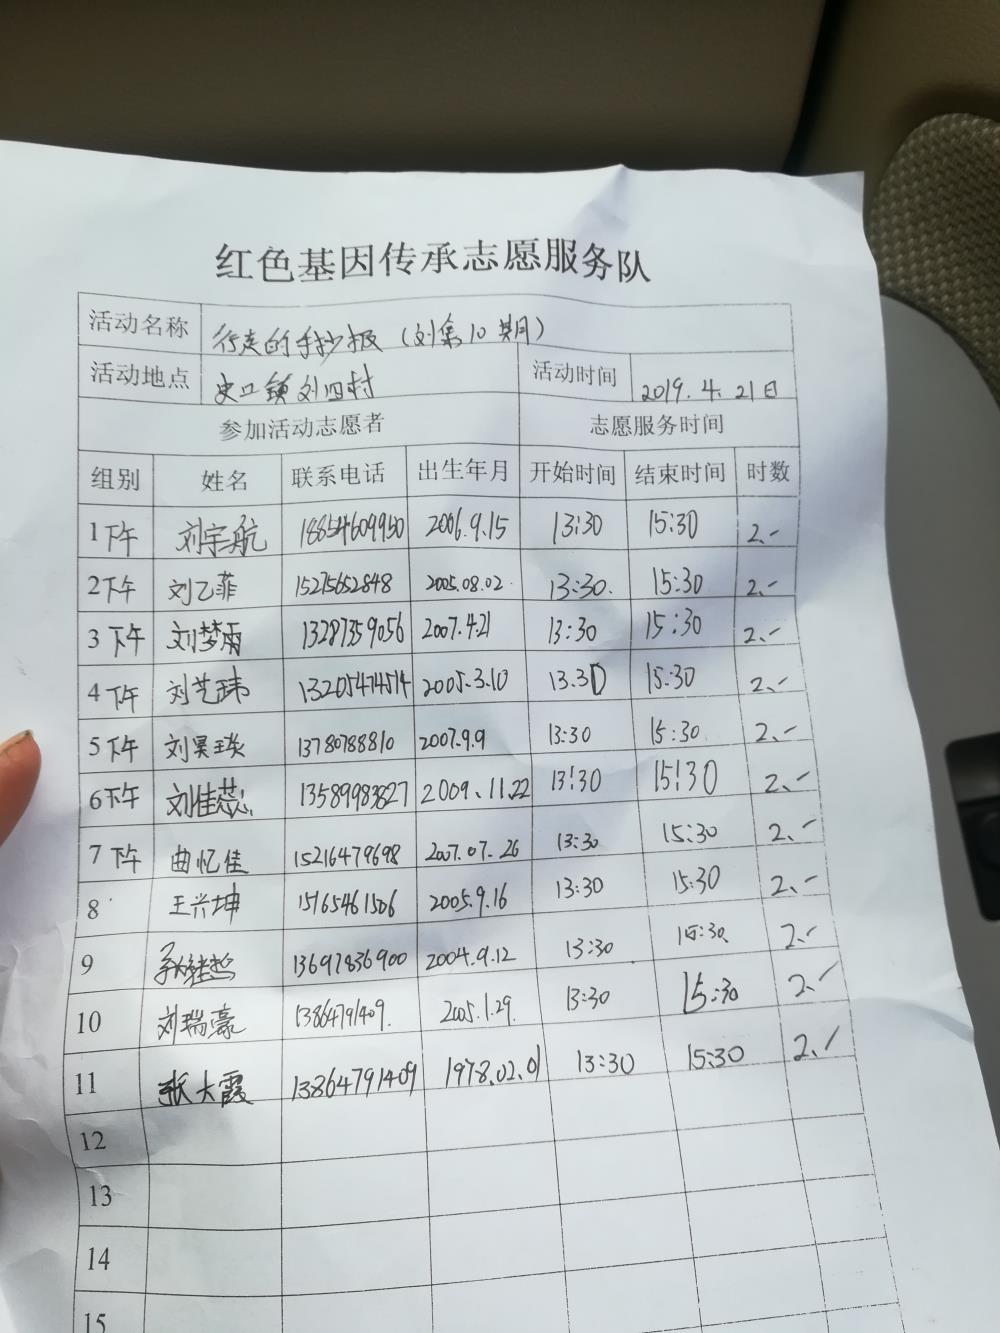 红色基因传承志愿服务队
活动名称 行走的手抄报（刘集10期）
活动地点 史口镇刘四村 活动时间 2019.4.21日
参加活动志愿者 志愿服务时间
组别 姓名 联系电话 出生年月 开始时间 结束时间 时数
1下午 刘宇航 18854609950 2006.9.15 13:30 15:30 2.-
2下午 刘乙菲 15275652848 2005.08.02. 13:30. 15:30 2.-
3下午 刘梦雨 13287359056 2007.4.21 13:30 15:30 2.-
4下午 刘艺玮 13205474514 2005.3.10 13.30 15:30 2.-
5下午 刘昊 13780788810 2007.9.9 13:30 15:30. 2.-
6下午 刘佳蕊 13589983827 2009.11.22 13:30 15:30 2.-
7下午 曲忆佳 15216479698 2007.07.26 13:30 15:30 2.-
8 王兴坤 15765461506 2005.9.16 13:30 15:30 2.-
9 13697836900 2004.9.12 13:30 15:30 2.-
10 刘瑞豪 13864791409. 2005.1.29. 13:30 15:30 2.-
11 张大霞 13864791409 1978.02.01 13:30 15:30 2.-
12
13
14
15